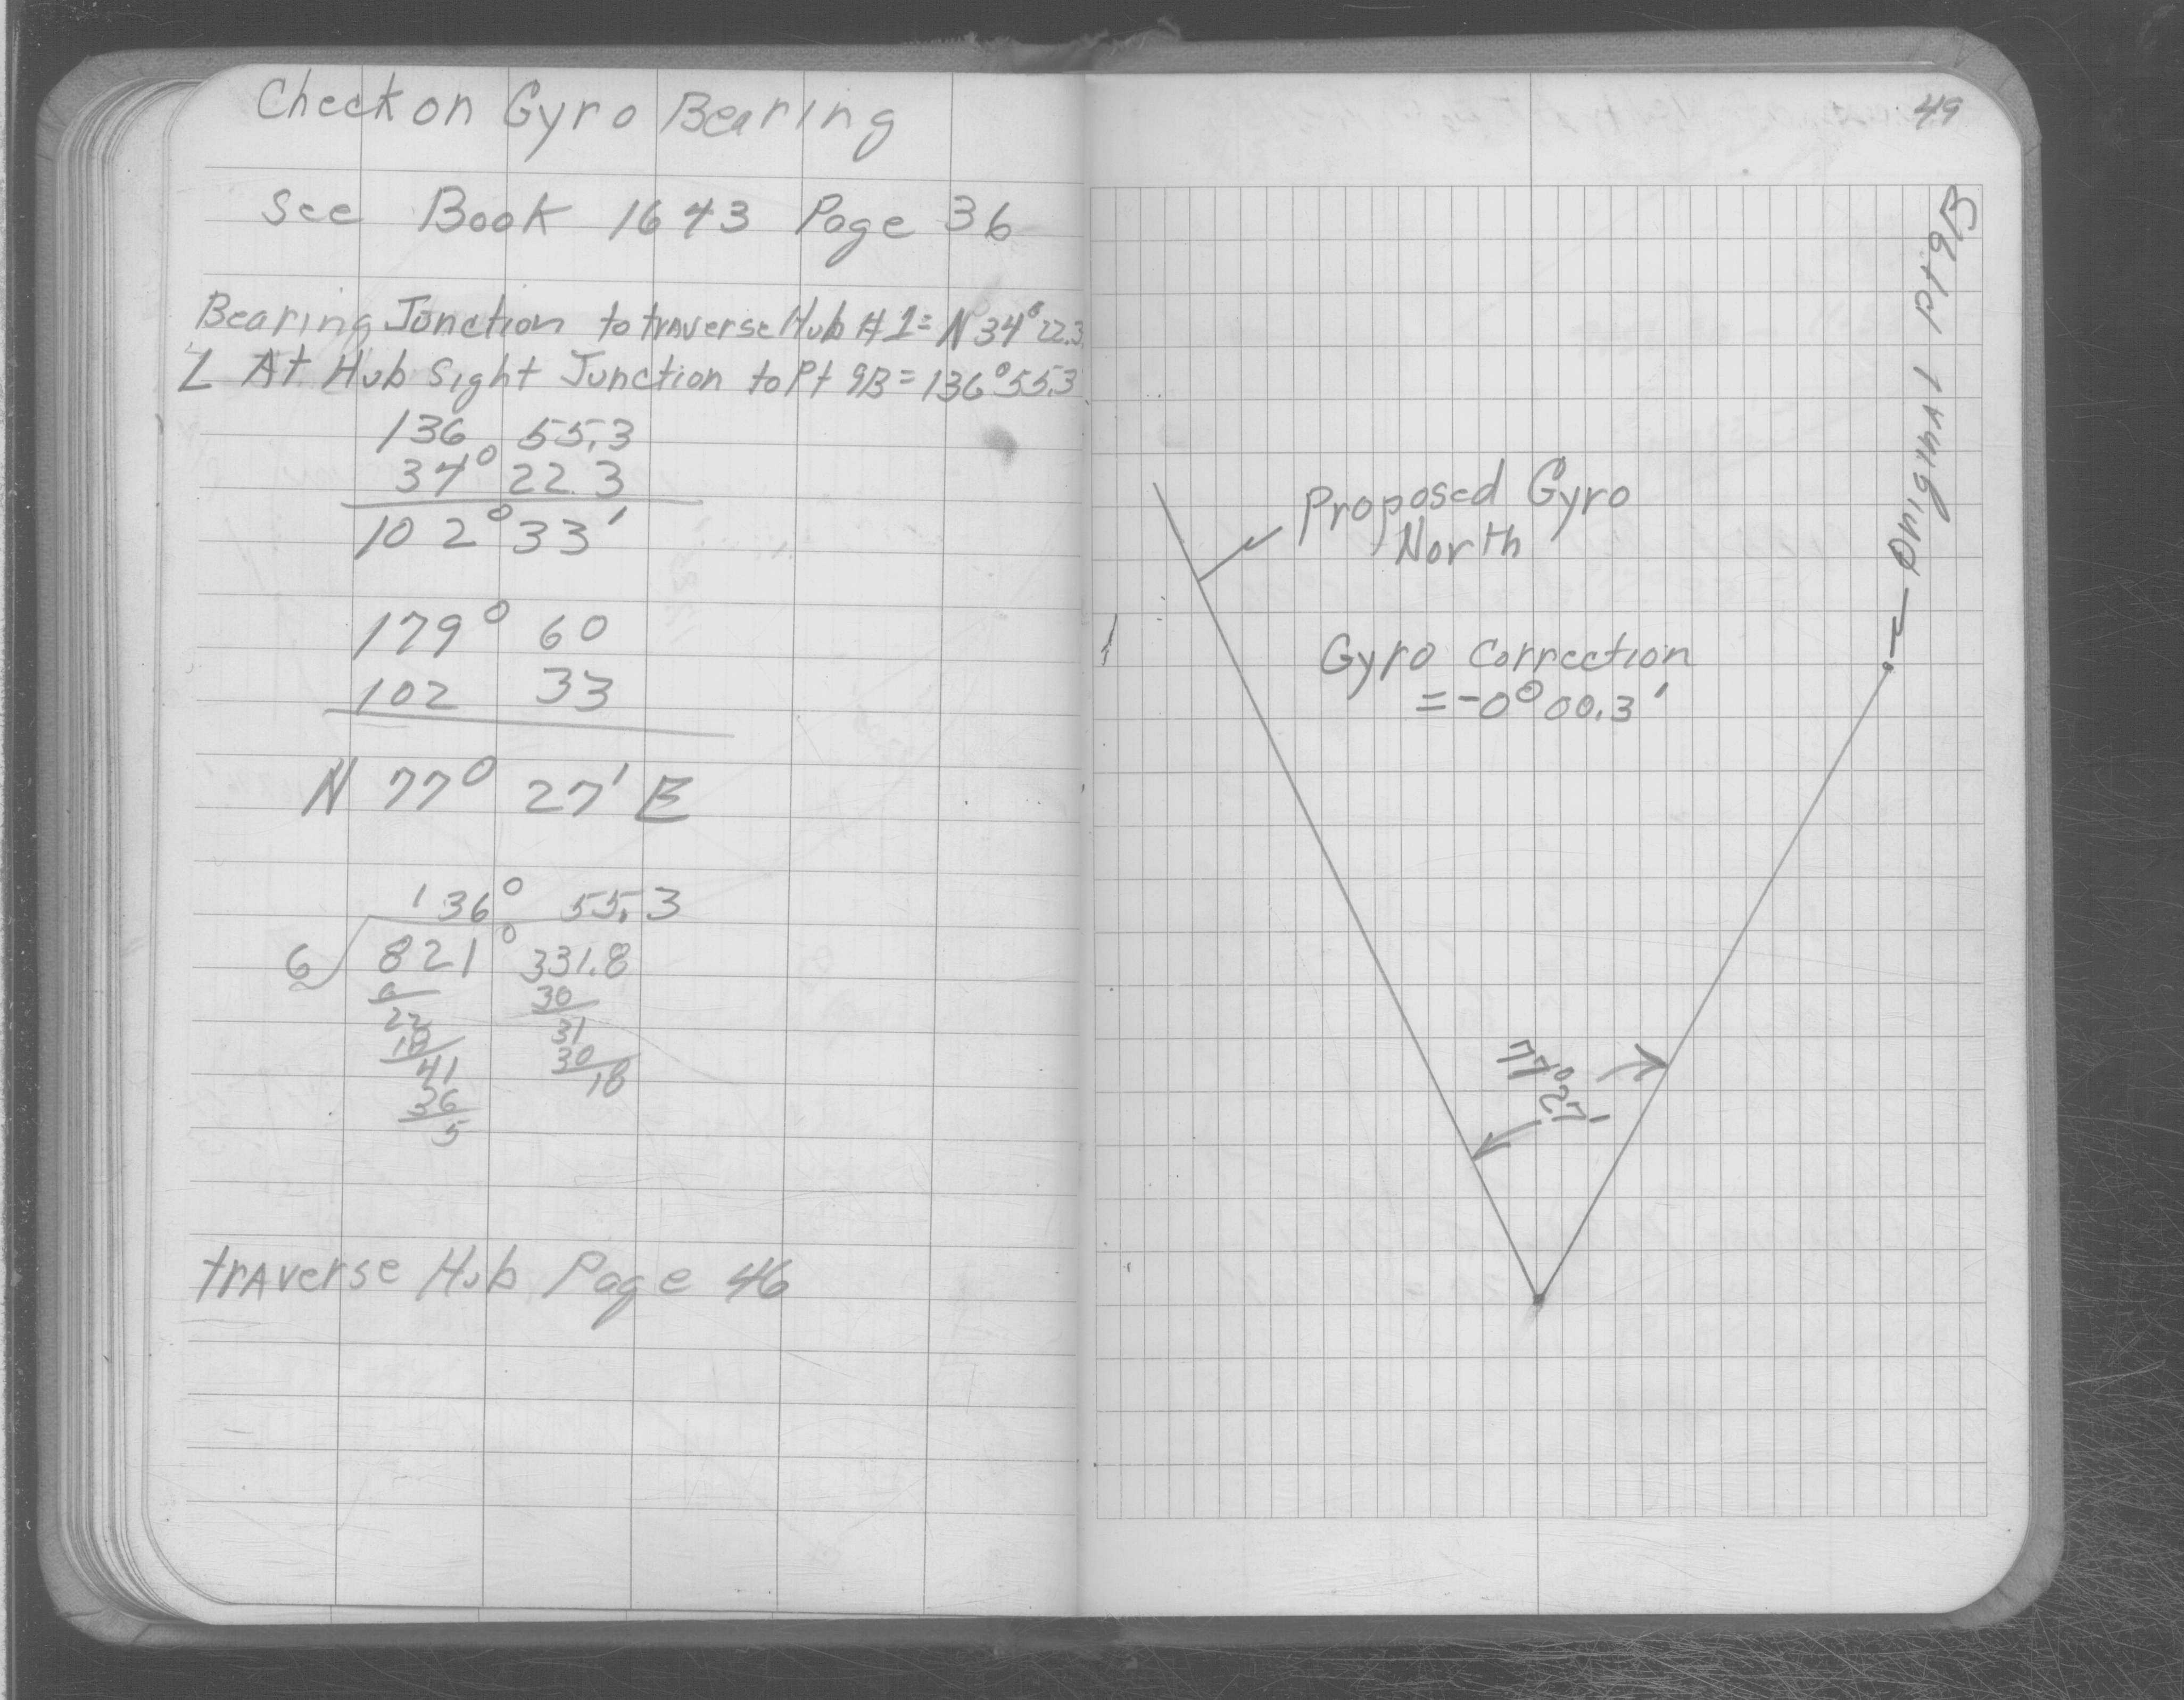 Check on Gyro Bearing
See Book 1643 Page 36
Bearing Junction to traverse Hub #1 = N 34° 22.3
∠ At Hub Sight Junction to Pt 9B = 136° 55.3
136 55.3
34° 22.3
102° 33'
179° 60
102 33
N 77° 27' E
136° 55.3
6 821° 331.8
6 30
22 31
18 30
41 18
36
5
traverse Hub Page 46
49
Original Pt 9B
Proposed Gyro
North
Gyro Correction
= -0° 00.3'
77° 27'